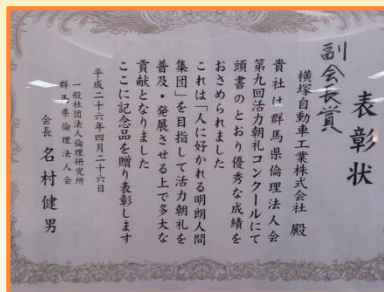 表彰状
副会長賞
横塚自動車工業株式会社 殿
貴社は群馬県倫理法人会
第九回活力朝礼コンクールにて
頭書のとおり優秀な成績を
おさめられました
これは「人に好かれる明朗人間
集団」を目指して活力朝礼を
普及・発展させる上で多大な
貢献となりました
ここに記念品を贈り表彰します
平成二十六年四月二十六日
一般社団法人倫理研究所
群馬県倫理法人会
会長 名村健男